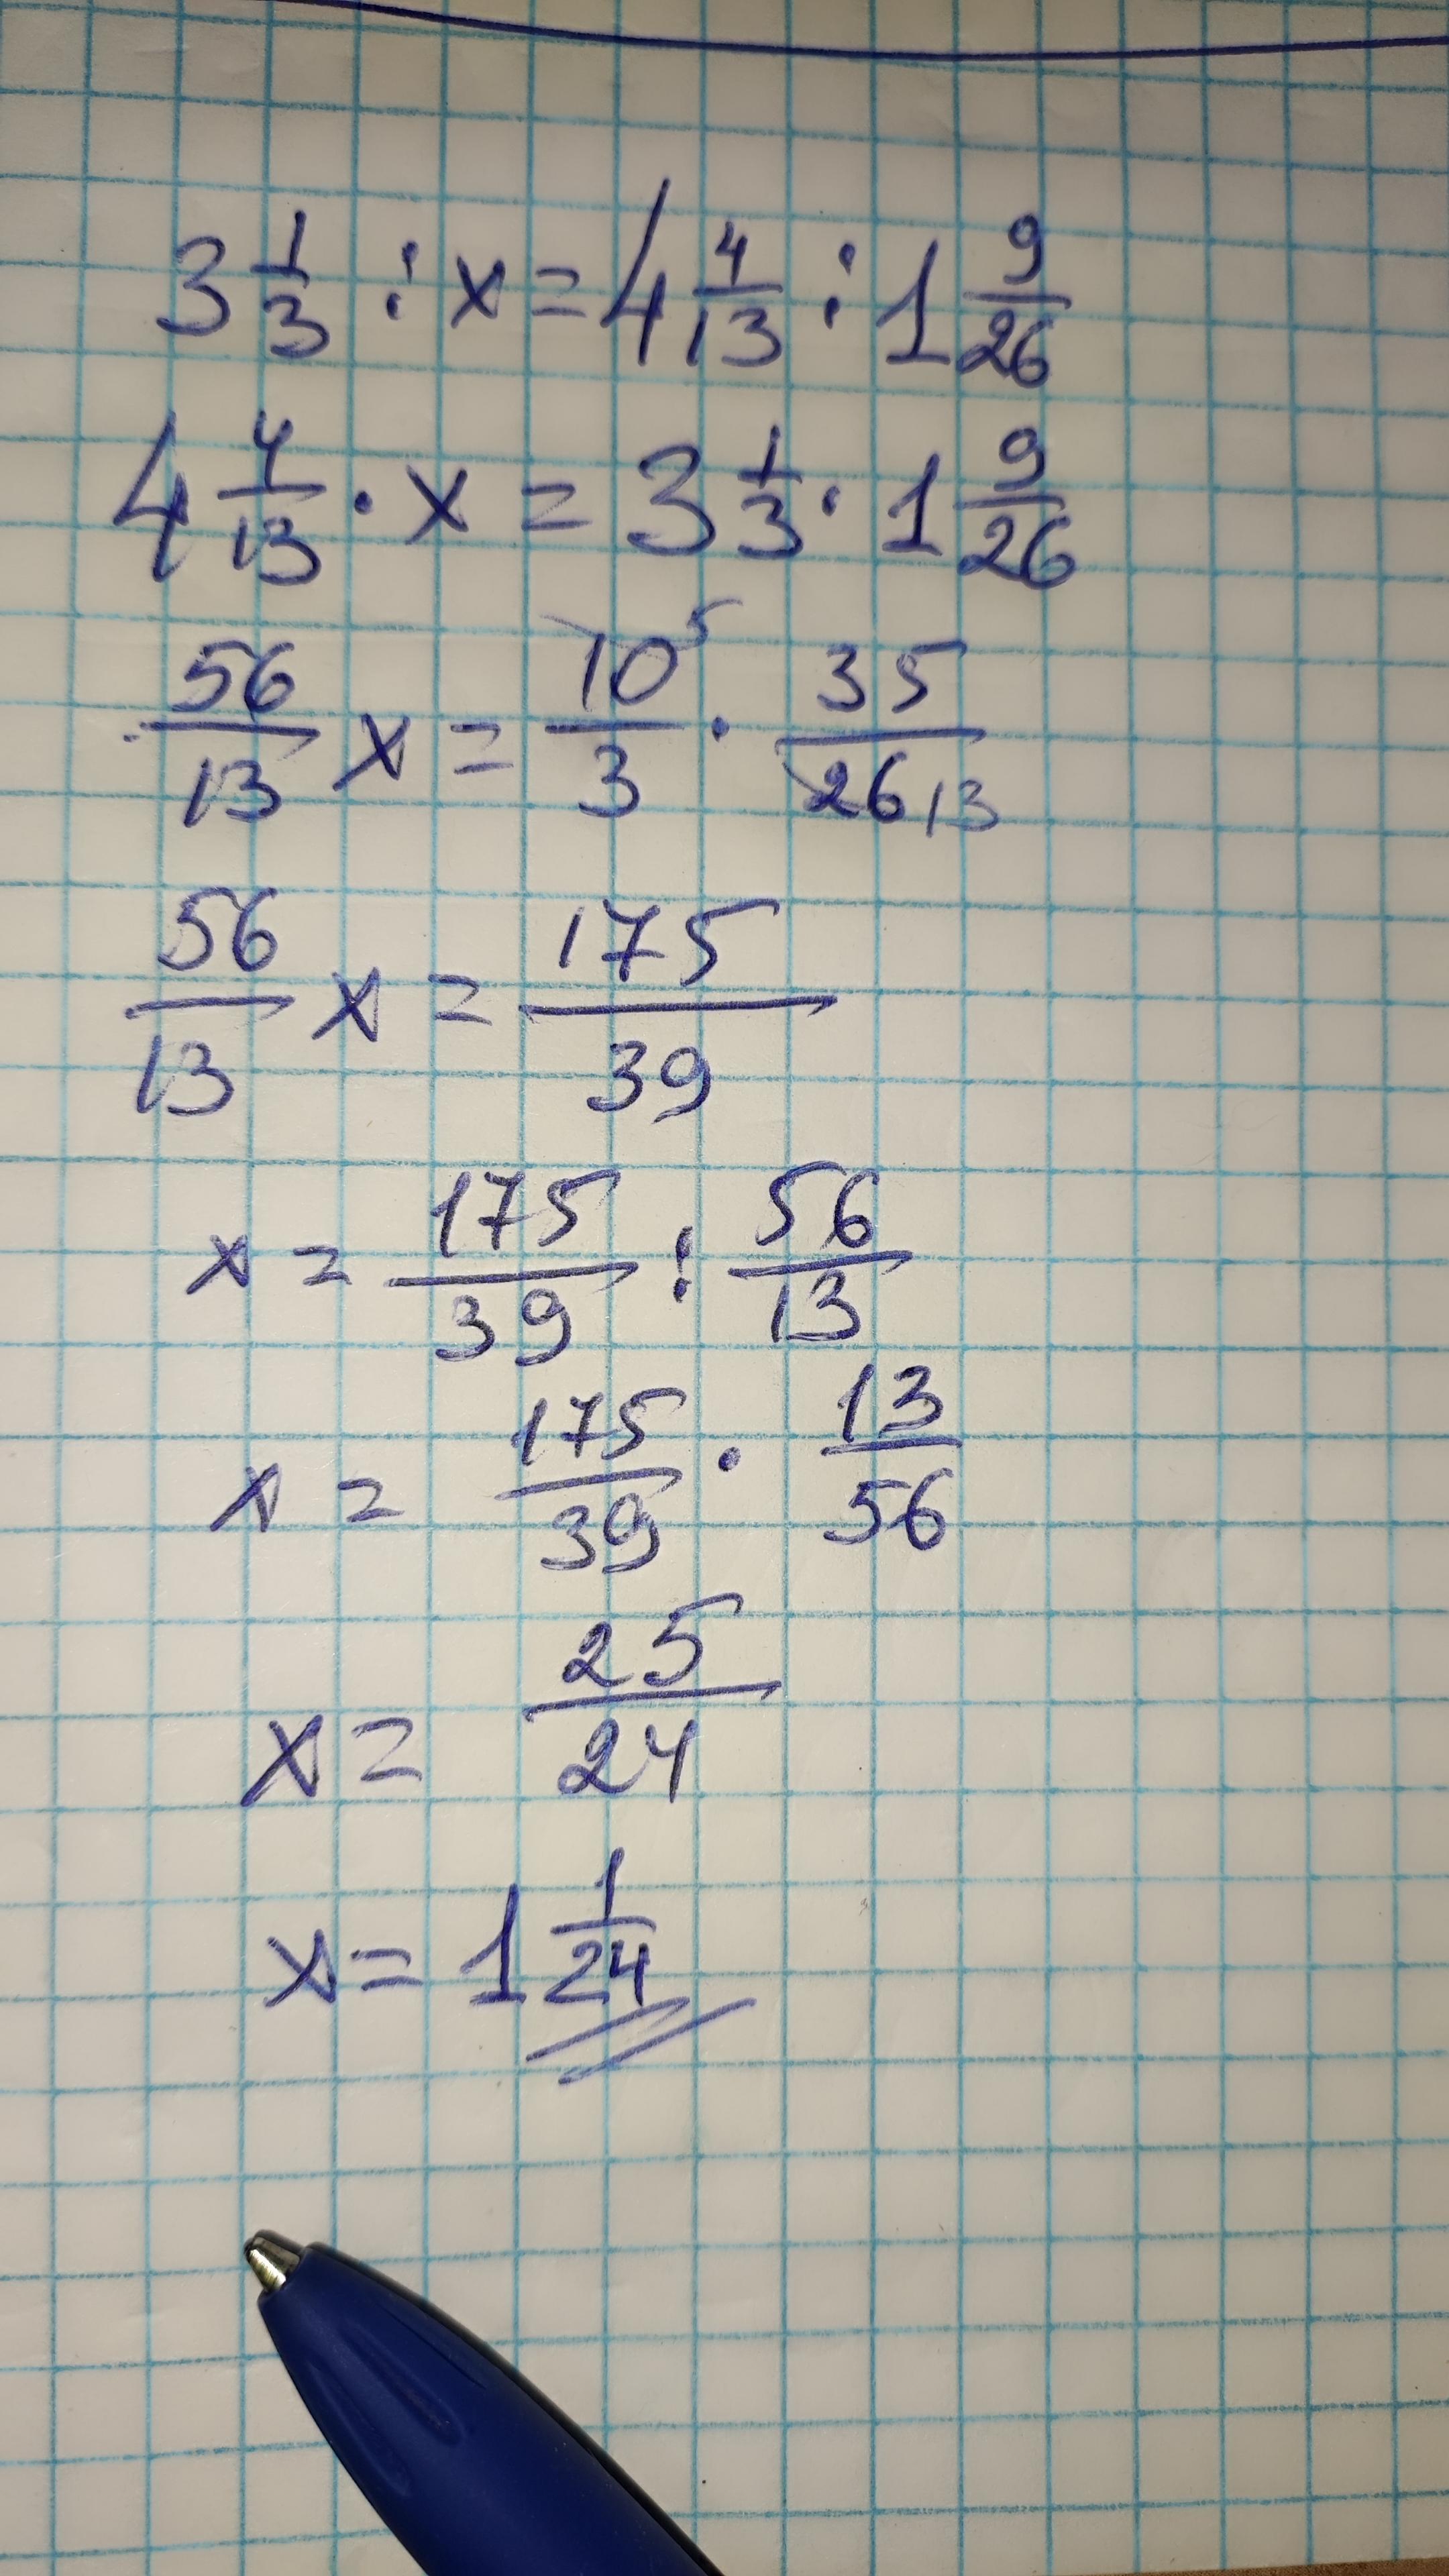 3 1/3 : x = 4 4/13 : 1 9/26
4 4/13 · x = 3 1/3 · 1 9/26
56/13 x = 10⁵/3 · 35/26₁₃
56/13 x = 175/39
x = 175/39 : 56/13
x = 175/39 · 13/56
x = 25/24
x = 1 1/24